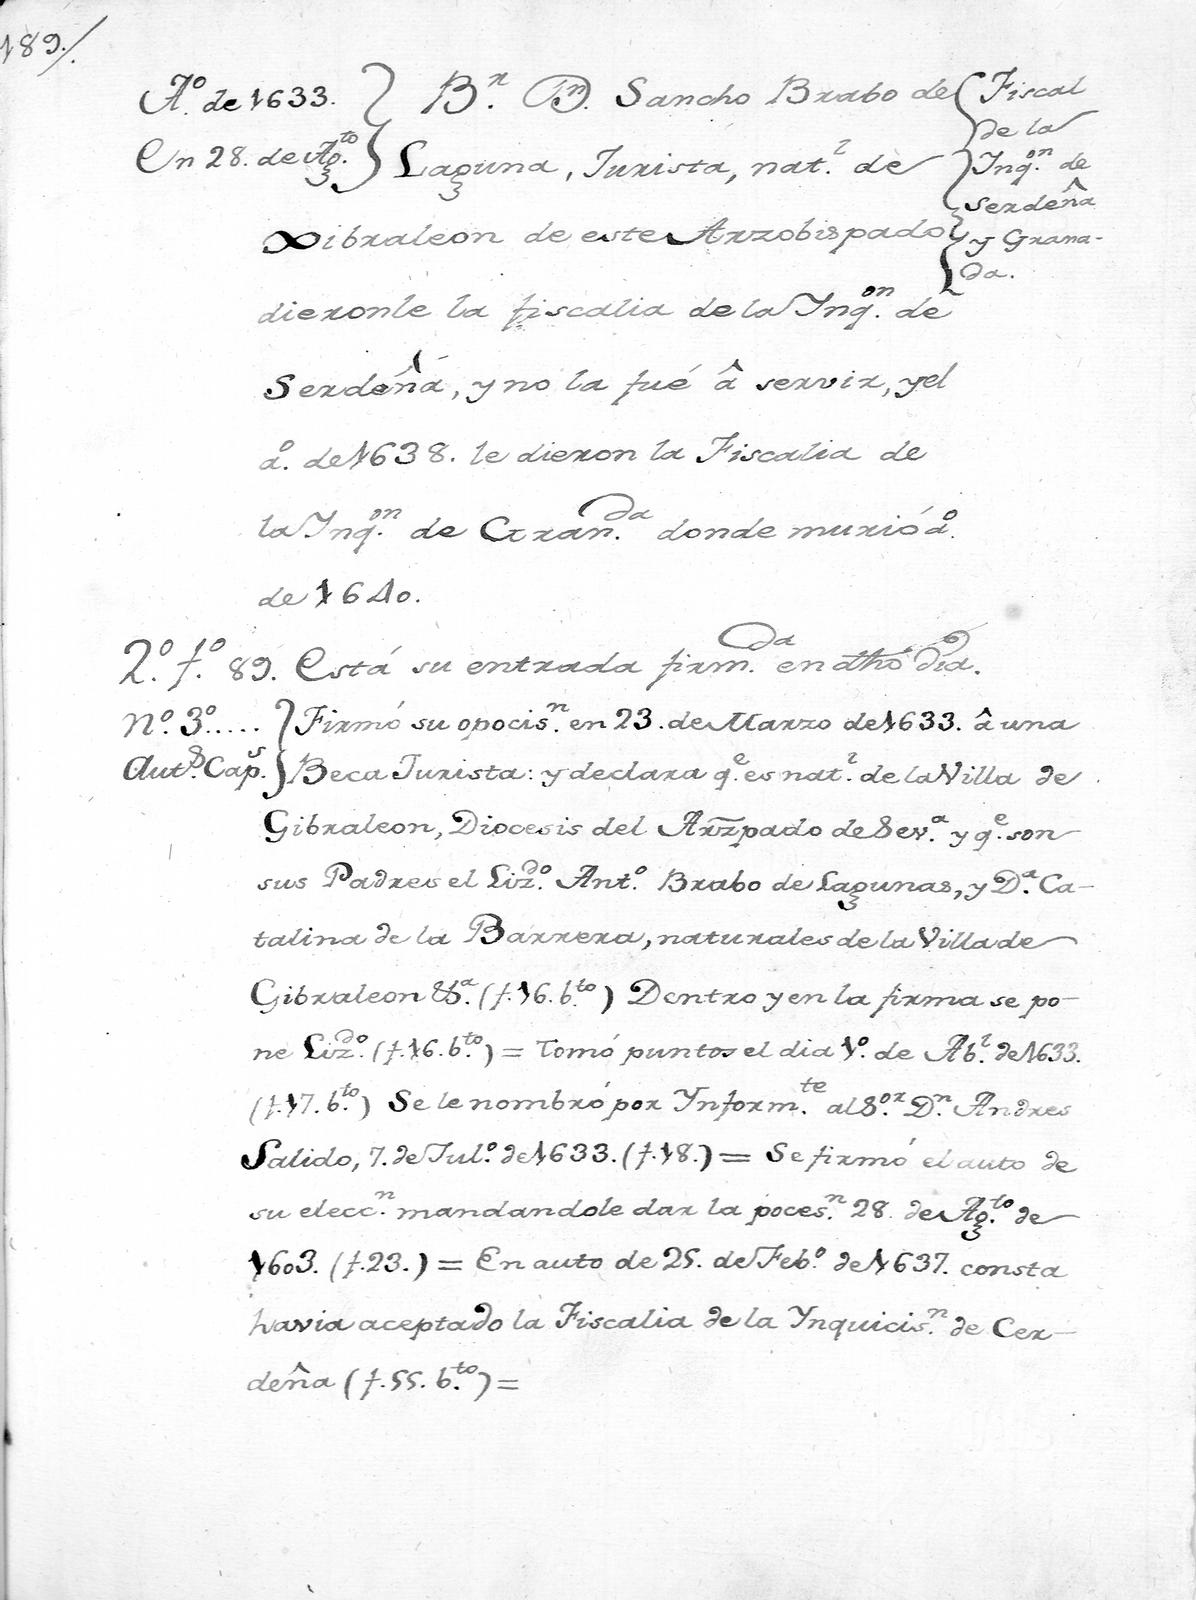 189./
Aº. de 1633.
En 28. de Agto.
Br. Dn. Sancho Brabo de
Laguna, Jurista, natl. de
Xibraleon de este Arzobispado
Fiscal
de la
Inqon. de
Serdeña
y Grana-
da.
dieronle la fiscalia de la Inqon. de
Serdeña, y no la fué â servir, y el
aº. de 1638. le dieron la Fiscalia de
la Inqon. de Granda. donde murió aº.
de 1640.
2º. fº. 89. Está su entrada firmda. en dhô dia.
Nº. 3º.....
Auts. Caps.
Firmó su opocisn. en 23. de Marzo de 1633. â una
Beca Jurista: y declara qe. es natl. de la Villa de
Gibraleon, Diocesis del Arzpado de Seva. y qe. son
sus Padres el Lizdo. Antº. Brabo de Lagunas, y Da. Ca-
talina de la Barrera, naturales de la Villa de
Gibraleon &a. (f. 16. bto.) Dentro y en la firma se po-
ne Lizdo. (f. 16. bto.) = Tomó puntos el dia 1º. de Abl. de 1633.
(f. 17. bto.) Se le nombró por Ynformte. al Sor. Dn. Andres
Salido, 7. de Julº. de 1633. (f. 18.) = Se firmó el auto de
su eleccn. mandandole dar la pocesn. 28. de Agto. de
1603. (f. 23.) = En auto de 25. de Febº. de 1637. consta
havia aceptado la Fiscalia de la Ynquicisn. de Cer-
deña (f. 55. bto.) =